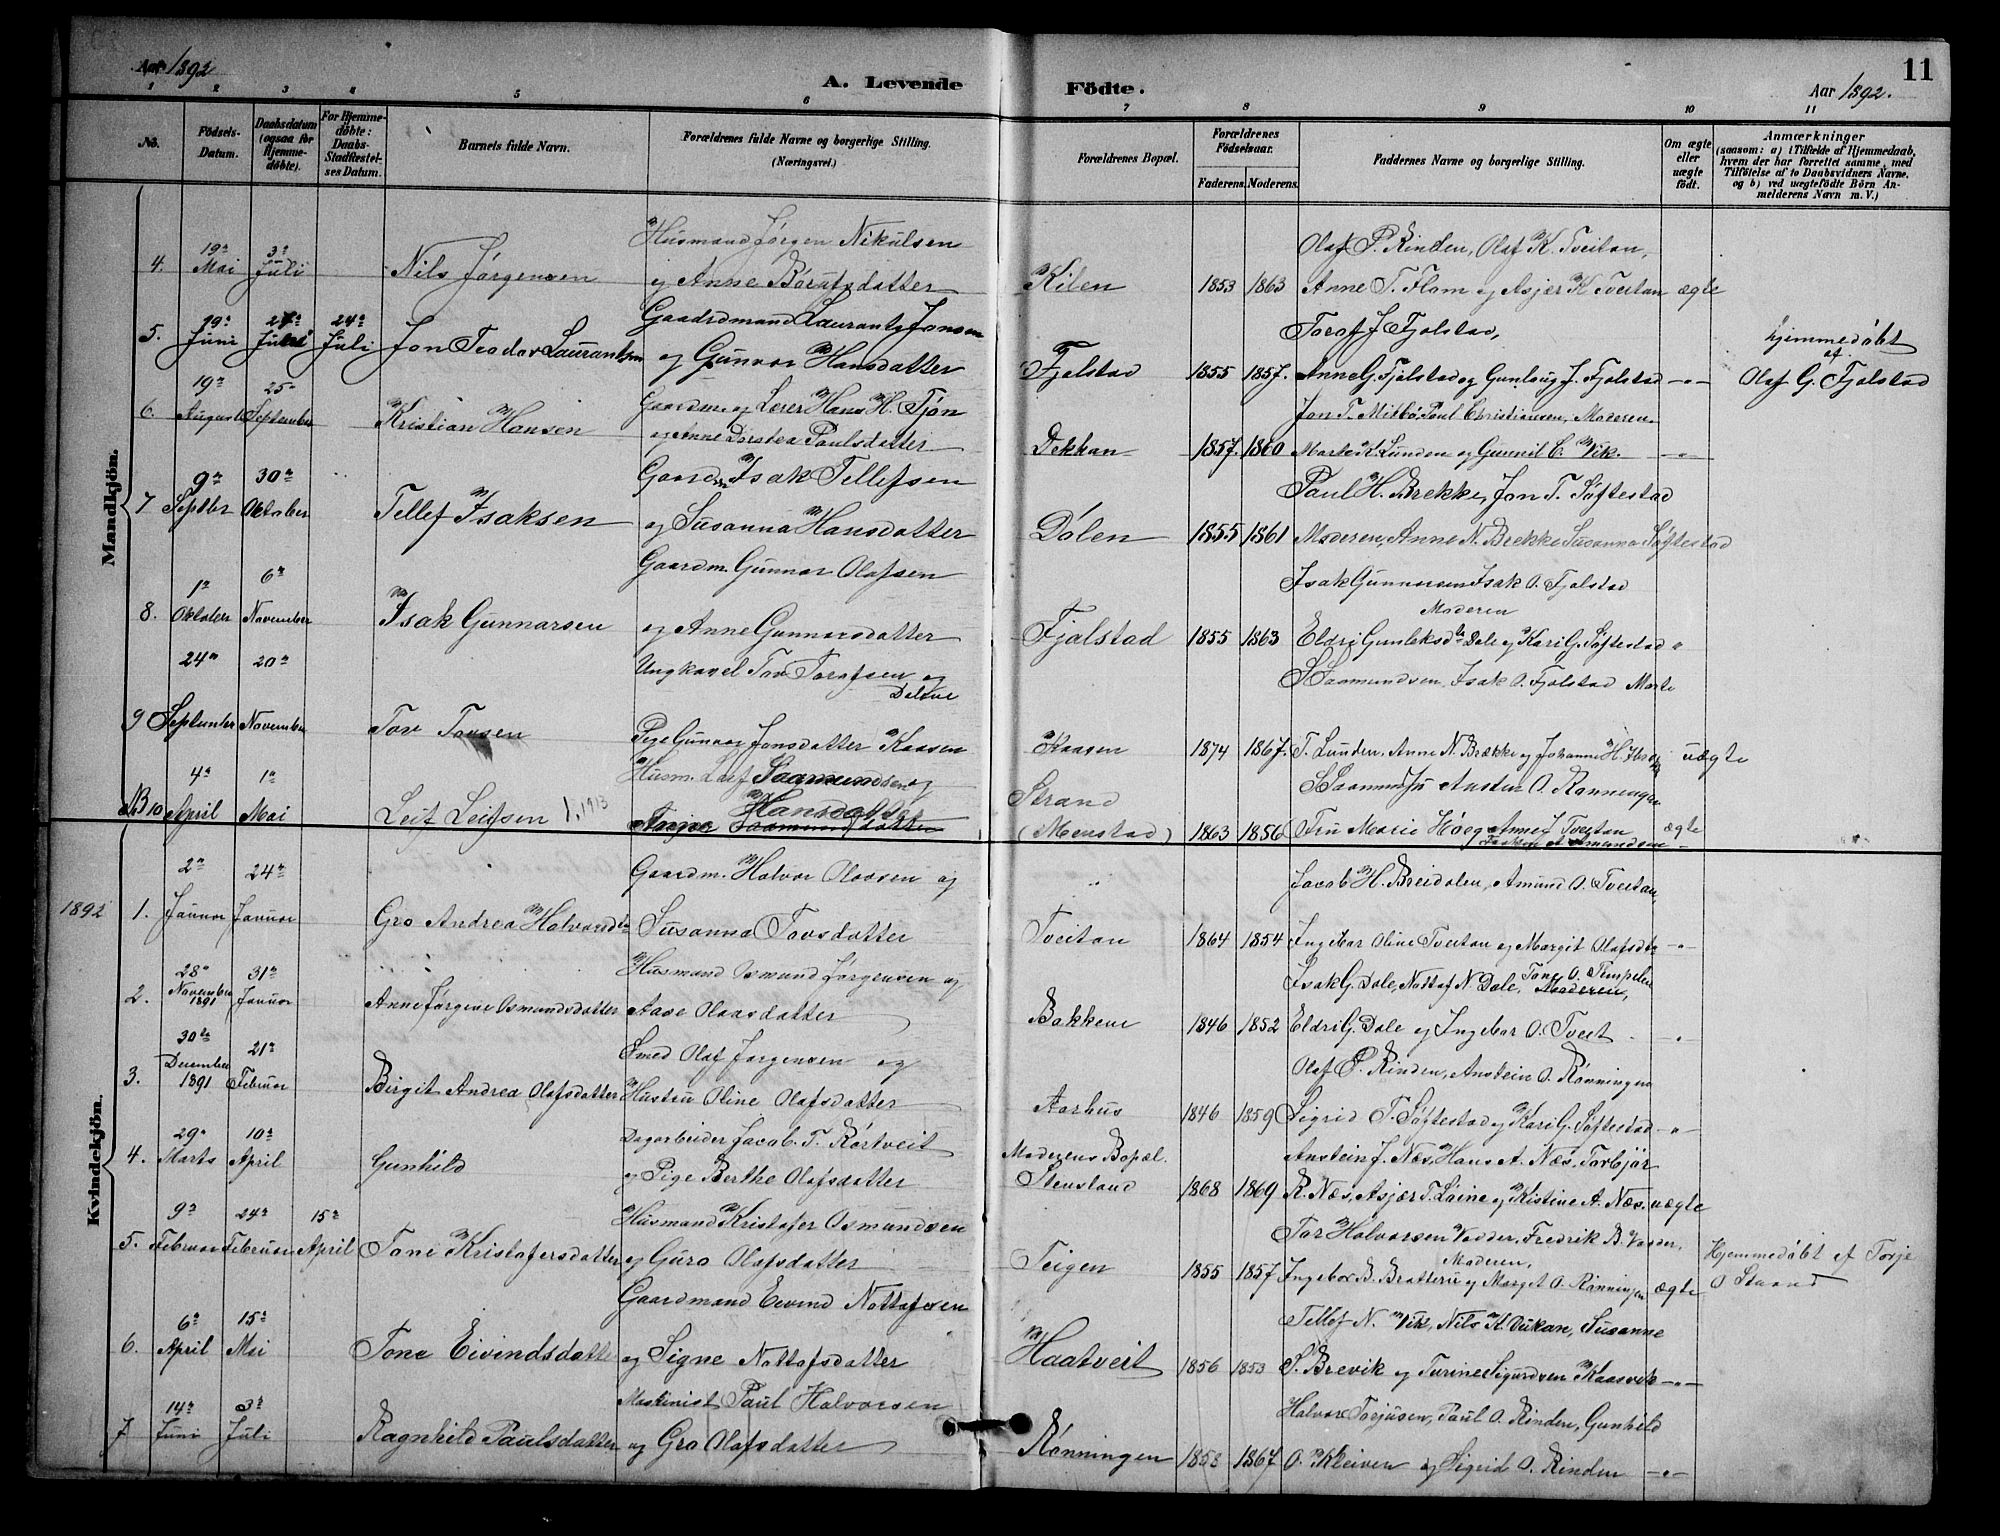 Aar 1892
A. Levende Födte.
Aar 1892.
11
1 2 3 4 5 6 7 8 9 10 11
No.
Födsels-Datum.
Daabsdatum (ogsaa for Hjemmedöbte).
For Hjemmedöbte: Daabs-Stadfæstelses Datum.
Barnets fulde Navn.
Forældrenes fulde Navne og borgerlige Stilling. (Næringsvei.)
Forældrenes Bopæl.
Forældrenes Födselsaar.
Faderens. Moderens.
Faddernes Navne og borgerlige Stilling.
Om ægte eller uægte födt.
Anmærkninger
(saasom: a) i Tilfælde af Hjemmedaab, hvem der har forrettet samme, med Tilföielse af to Daabsvidners Navne, og b) ved uægtefödte Börn Anmelderens Navn m. V.)
Mandkjön.
4. 19de Mai 3de Juli Nils Jørgensen
Husmand Jørgen Nikulsen
og Anne Børufsdatter
Kilen 1853 1863
Olaf P. Rinden, Olaf K. Tveitan,
Anne T. Flom og Asjær K Tveitan ægte
5. 19de Juni Juli 24de Juli Jon Teodor Laurantsen
Gaardmand Laurants Jonsen
og Gunvor Hansdatter
Fjelstad 1855 1857.
Torof J Fjolstad,
Anne G. Fjelstad og Gunloug J. Fjelstad -"-
hjemmedøbt
af
Olaf G. Fjolstad
6. 19de August 25de September Kristian Hansen
Gaardm. og Lerer Hans H. Tjøn
og Anne Dorthea Paulsdatter
Dekkan 1857. 1860
Jon T. Mitbø, Paul Christiansen, Moderen.
Marte K. Lunden og Gunnil C. Vik. -"-
7 9de Septber 30de Oktober Tellef Isaksen
Gaardm Isak Tellefsen
og Susanna Hansdatter
Dølen 1855 1861
Paul H. Brekke, Jon T. Søftestad
Moderen, Anne N. Brekke Susanna Søftestad
8. 1de Oktober 6te November Isak Gunnarsen
Gaardm. Gunnar Olafsen
og Anne Gunnarsdatter
Fjalstad 1855 1863
Isak Gunnarsen Isak O. Fjolstad
Moderen
Eldri Gunleksdtr Dale og Kari G. Søftestad "
9 24de September 20de November Tov Tovsen
Ungkarel Tov Torofsen og
Pige Gunvor Jonsdatter Kaasen
Kaasen 1874 1867.
S Saamundsen, Isak O. Fjolstad Marte
T. Lunden, Anne N. Brække og Johanne H. uægte
10 4de April 1de Mai Leif Leifsen 1.1913
Husm. Leif Saamundsen og
Hansdatter
Strand
(Menstad) 1863 1856
S Saamundsen Ansten O. Rønningen
Fru Marie Høeg Anne J Tveitan ægte
Kvindekjön.
1892 1. 2de Januar 24de Januar Gro Andrea Halvorsdtr
Gaardm. Halvor Olavsen og
Susanna Tovsdatter
Tveitan 1864 1854
Jacob H. Breidalen, Amund O. Tveitan,
Ingebor Oline Tveitan og Margit Olafsdtr -"-
2. 28de November 1891 31te Januar Anne Jørgine Osmundsdatter
Husmand Osmund Jørgensen og
Aase Olavsdatter
Bakkene 1846 1852
Isak G. Dale, Nottof N. Dale, Tone O. Tempelen
Moderen,
Eldri G. Dale og Ingebor O. Tveit. -"-
3. 30te December 1891 21de Februar Birgit Andrea Olafsdatter
Smed Olaf Jørgensen og
Hustru Oline Olafsdatter
Aarhus 1846 1859
Olaf P. Rinden, Anstein O. Rønningen
Sigrid T. Søftestad og Kari G. Søftestad -"-
4. 29de Marts 10de April Gunhild
Dagarbeider Jacob T. Rørtveit
og Pige Berthe Olafsdatter
Moderens Bopæl.
Stensland 1868 1869
Anstein J. Næs, Hans A. Næs, Torbjør
R. Næs, Asjær T. Laine og Kistine A. Næs. uægte
5. 9de Februar 24de Februar 15de April Tone Kristofersdatter
Husmand Kristofer Osmundsen
og Guro Olafsdatter
Teigen 1855 1857
Tor Halvorsen Vadder, Fredrik B. Vaden,
Moderen,
Ingebor B. Bratterud og Margit O. Rønningen ægte
Hjemmedøbt af Torje
O Straand
6. 6te April 15de Mai Tone Eivindsdatter
Gaardmand Eivind Nottofsen
og Signe Nottofsdatter
Haatveit 1856 1853
Tellef N. Vik, Nils H. Vukan, Susanne
S. Brevik og Turine Sigurdsen Kaasvik -"-
7. 14de Juni 3de Juli Ragnhild Paulsdatter
Maskinist Paul Halvorsen
og Gro Olafsdatter
Rønningen 1858 1867
Halvor Torjusen, Paul O. Rinden, Gunhild
O. Kleiven og Sigrid O. Rinden -"-